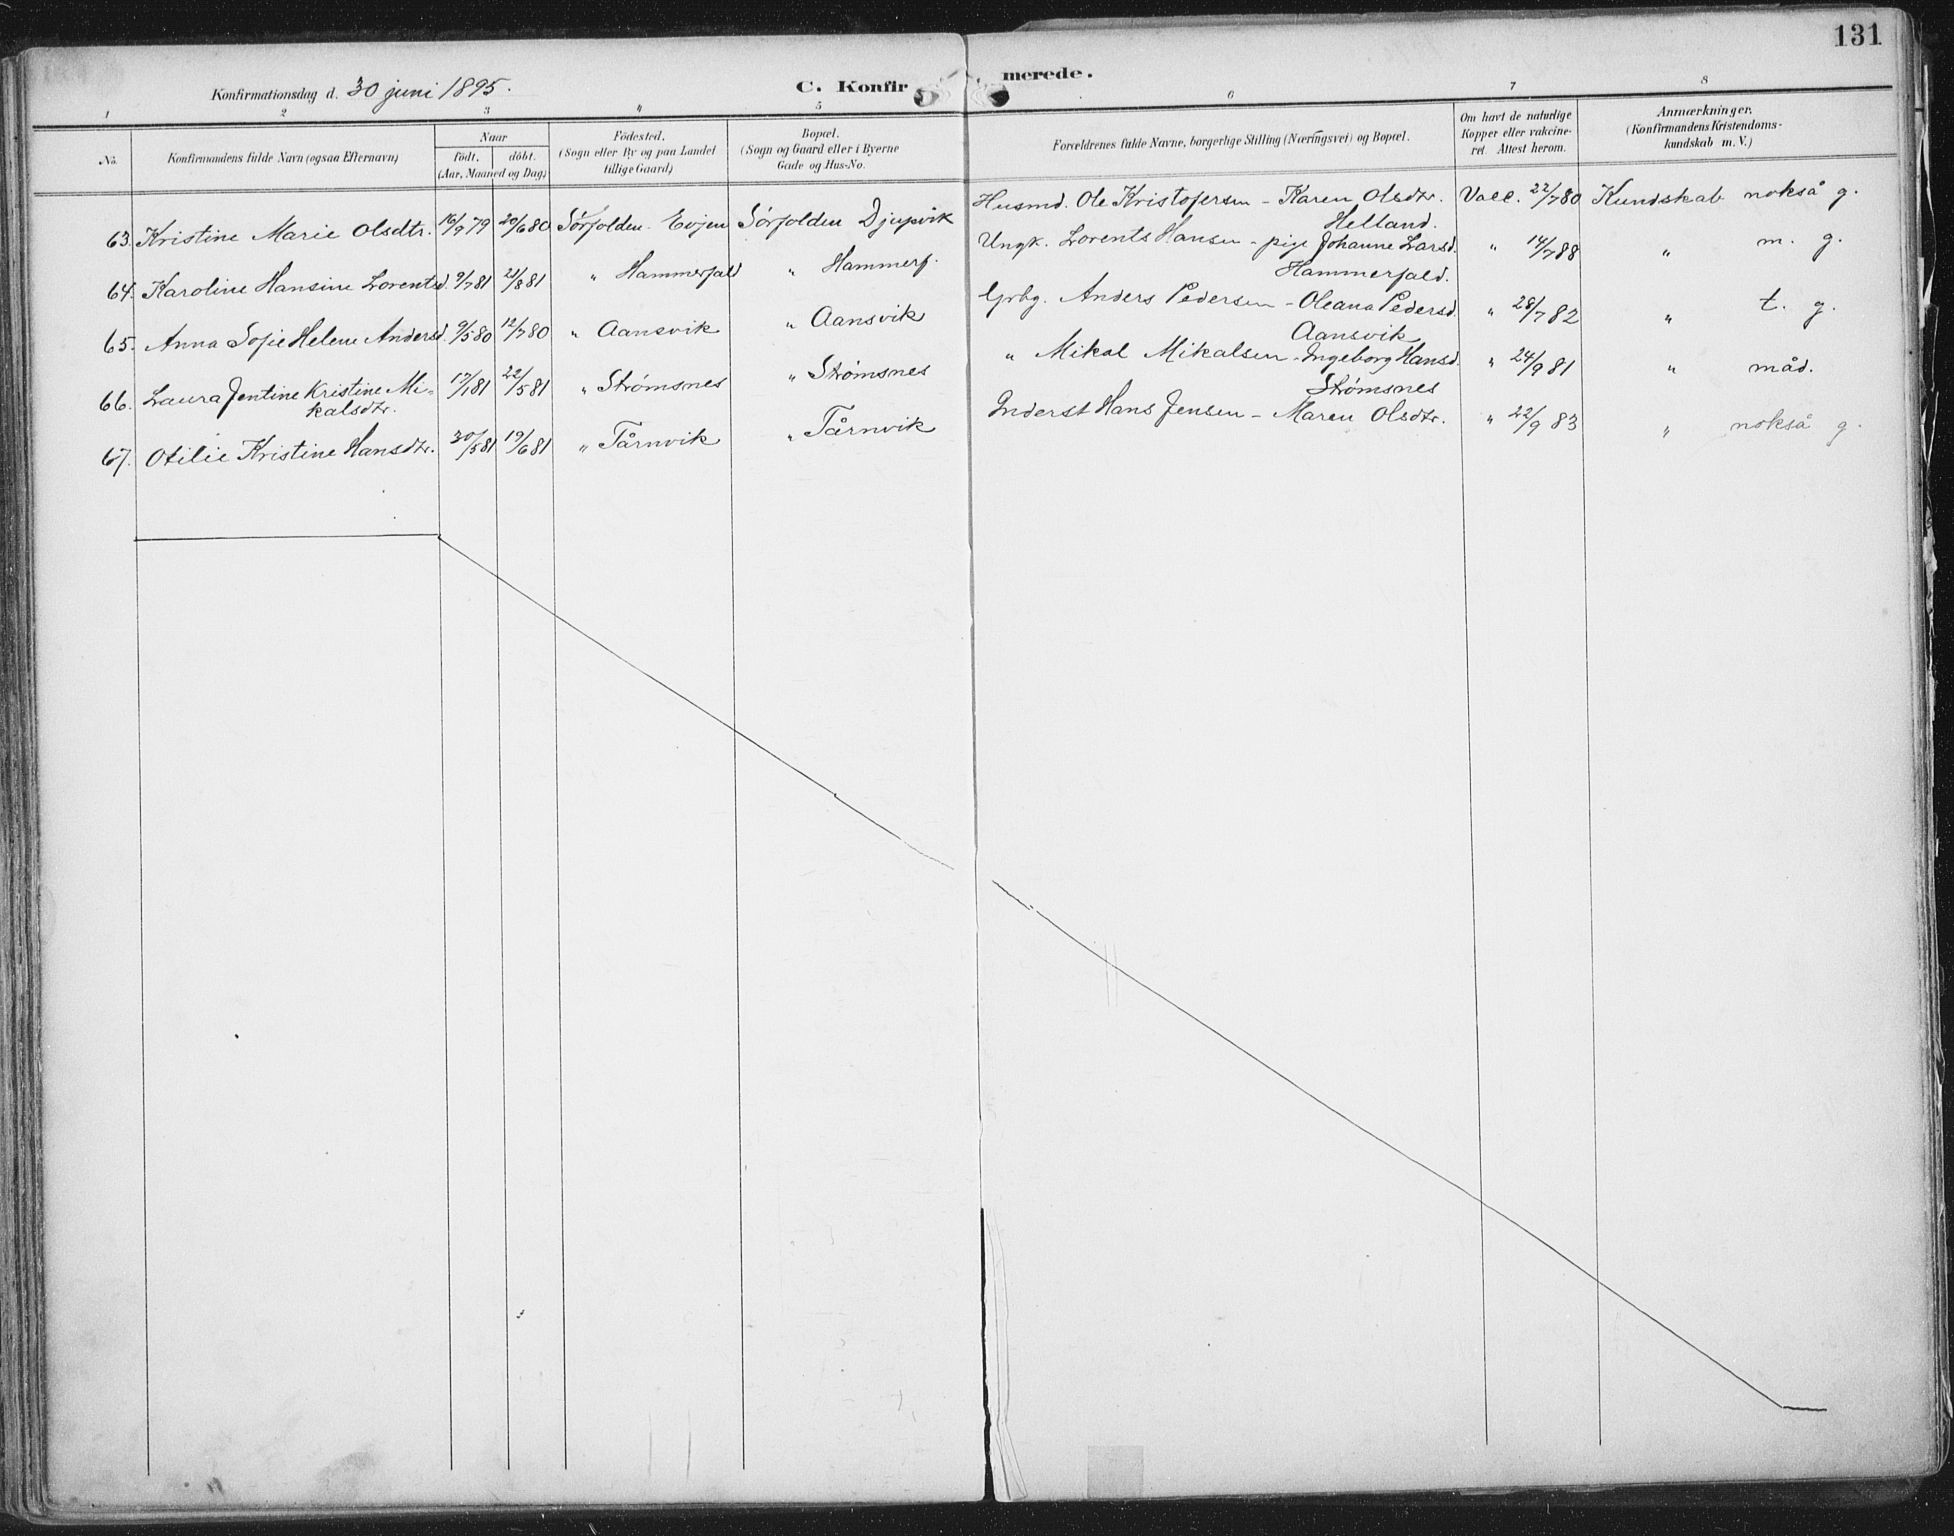 131
Konfirmationsdag d. 30 juni 1895.
C. Konfir merede.
1 2 3 4 5 6 7 8
No. Konfirmandens fulde Navn (ogsaa Efternavn) Naar födt. döbt. (Aar, Maaned og Dag) Födested. (Sogn eller By og paa Landet tillige Gaard) Bopæl. (Sogn og Gaard eller i Byerne Gade og Hus-No. Forældrenes fulde Navne, borgerlige Stilling (Næringsvei) og Bopæl. Om havt de naturlige Kopper eller vakcineret. Attest herom. Anmærkninger. (Konfirmandens Kristendomskundskab m. V.)
63. Kristine Marie Olsdtr. 16/9 79 20/6 80 Sörfolden Evjen Sörfolden Djupvik Husmd. Ole Kristofersen - Karen Olsdtr. Vacc. 22/7 80 Kundskab nokså g.
Helland.
64. Karoline Hansine Lorentsd. 9/7 81 21/8 81 " Hammerfald " Hammerf. Ungk. Lorents Hansen - pige Johanne Larsd. " 14/7 88 " m. g.
Hammerfald.
65. Anna Sofie Helene Andersd. 9/5 80 12/7 80 " Aansvik " Aansvik Grbg. Anders Pedersen - Oleana Pedersd. " 28/7 82 " t. g.
Aansvik
66. Laura Jentine Kristine Mi- 17/1 81 22/5 81 " Strømsnes " Strømsnes " Mikal Mikalsen - Ingeborg Hansd. " 24/9 81 " måd.
kalsdtr. Strømsnes
67. Otilie Kristine Hansdtr. 30/5 81 19/6 81 " Tårnvik " Tårnvik Inderst Hans Jensen - Maren Olsdtr. " 22/9 83 " nokså g.